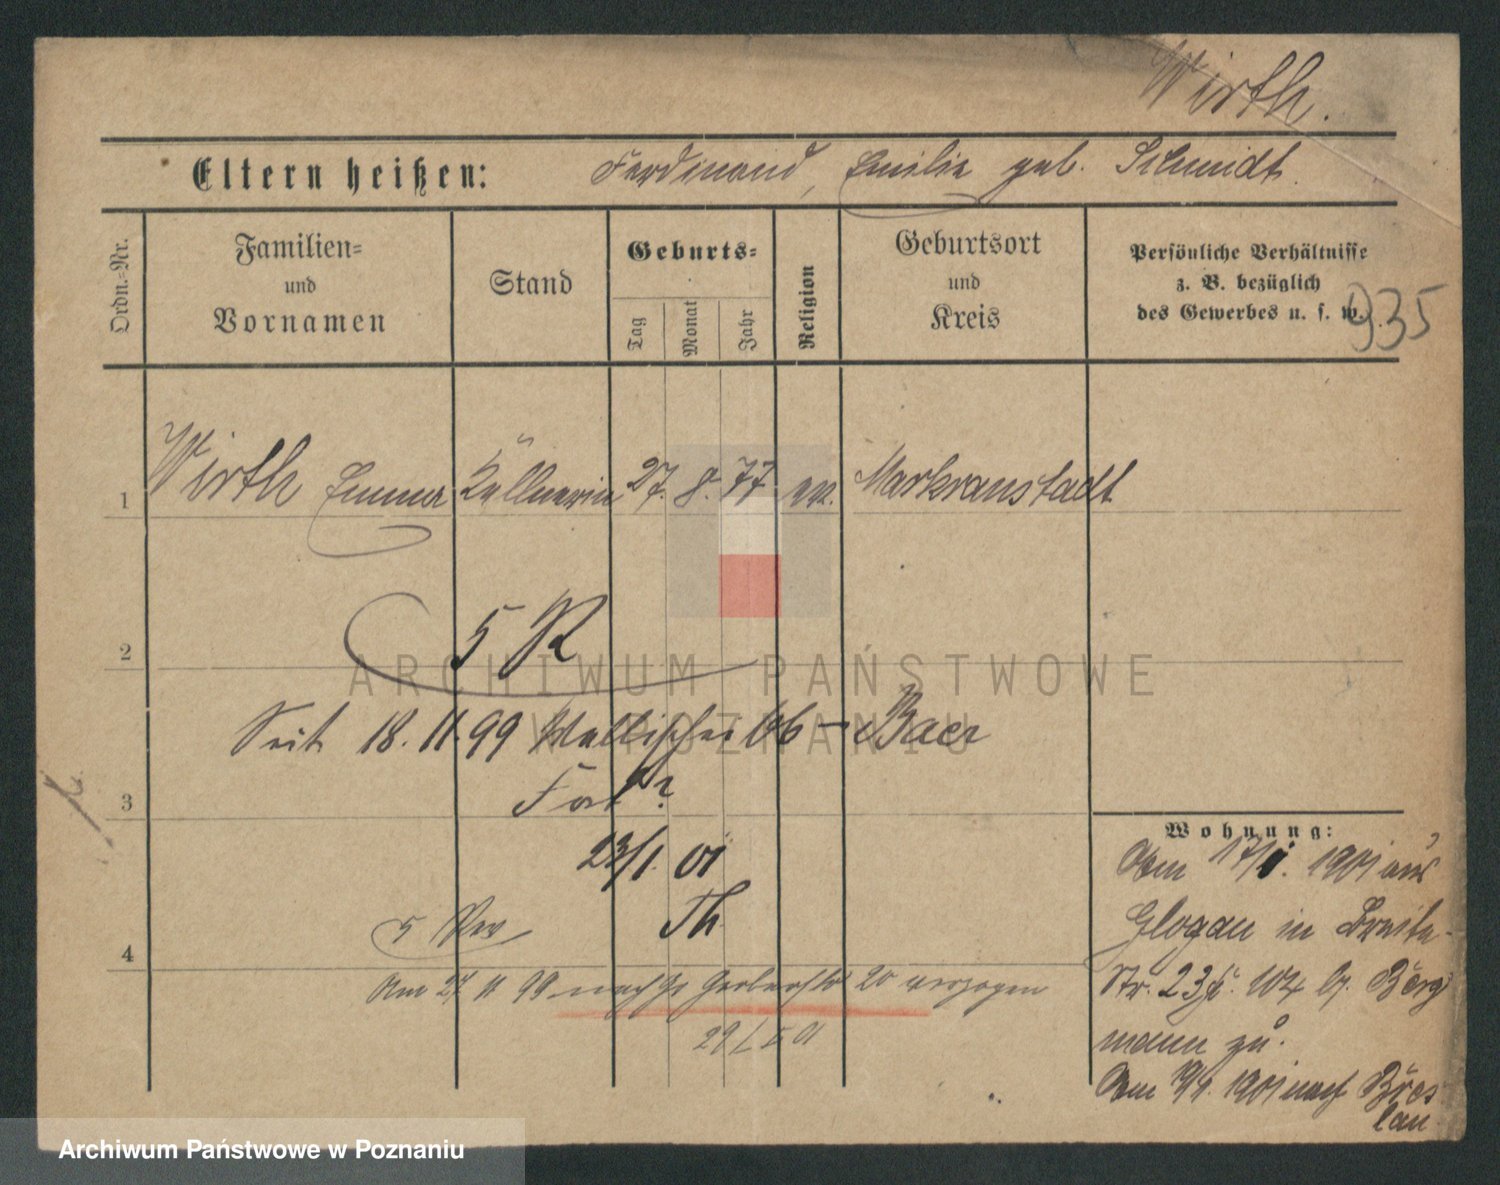 Wirth.
Eltern heißen: Ferdinand, Emilie geb. Schmidt.
Ordn.-Nr.
Familien-
und
Vornamen
Stand
Geburts-
Tag
Monat
Jahr
Religion
Geburtsort
und
Kreis
Persönliche Verhältnisse
z. B. bezüglich
des Gewerbes u. s. w.
935
1 Wirth Emma Kellnerin 27. 8. 77 ev. Markranstadt
2
5 R
ARCHIWUM PAŃSTWOWE
W POZNANIU
Seit 18. 11. 99 Wallischei 66 - Baer
3
Fort?
23/1. 01
Th
4
5 Rev
Am 27 11 99 nach Gerberstr 20 verzogen
Wohnung:
Am 17/1. 1901 aus
Glogau in Breite-
Str. 23 b. Berg
mann zu.
Am 1901 nach Bres
lau
Archiwum Państwowe w Poznaniu